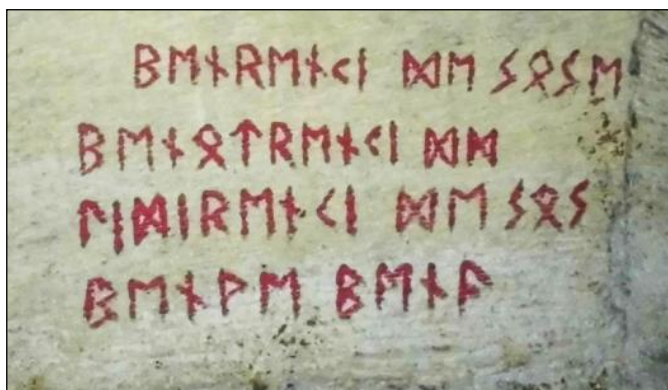 ᛒᛖᚾᚱᛖᚾᚲᛁ ᛞᛖ ᛊᛟᛊᛖ
ᛒᛖᚾᛟᛏᚱᛖᚾᚲᛁ ᛞᛞ
ᛚᛁᛞᛁᚱᛖᚾᚲᛁ ᛞᛖ ᛊᛟᛊ
ᛒᛖᚾᚹᛖ ᛒᛖᚾᚩ